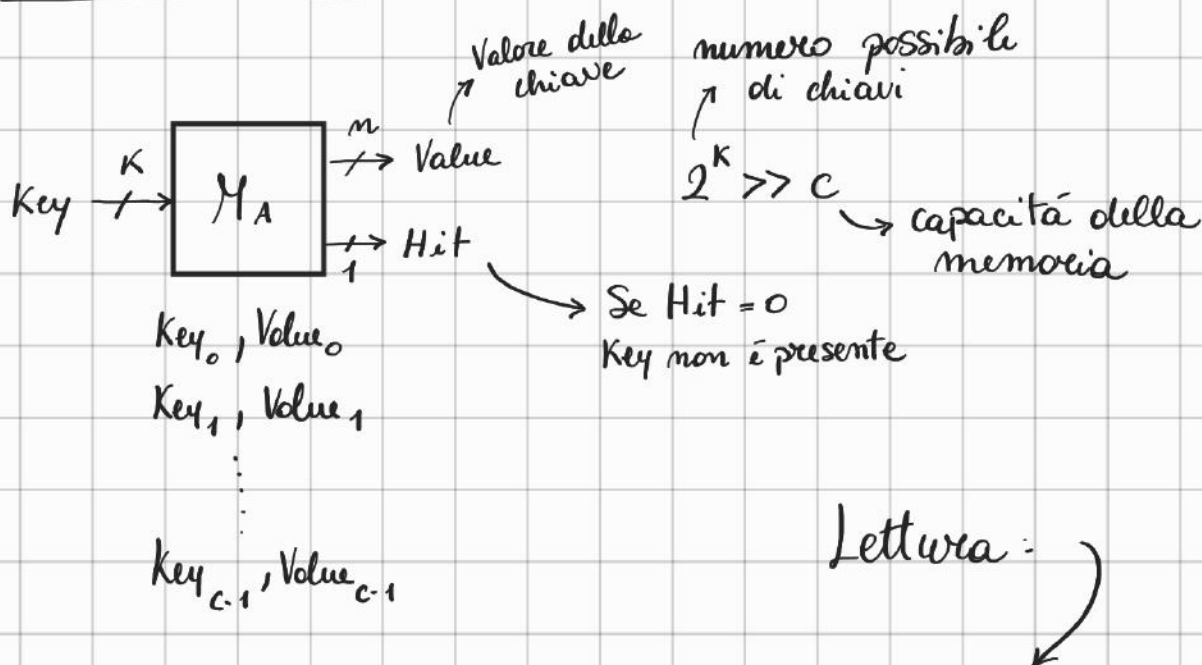 Valore della
chiave
numero possibile
di chiavi
K
Key
M_A
n
Value
1
Hit
2^K >> C
capacitá della
memoria
Se Hit = 0
Key non é presente
Key_0, Value_0
Key_1, Value_1
Key_C-1, Value_C-1
Lettura: